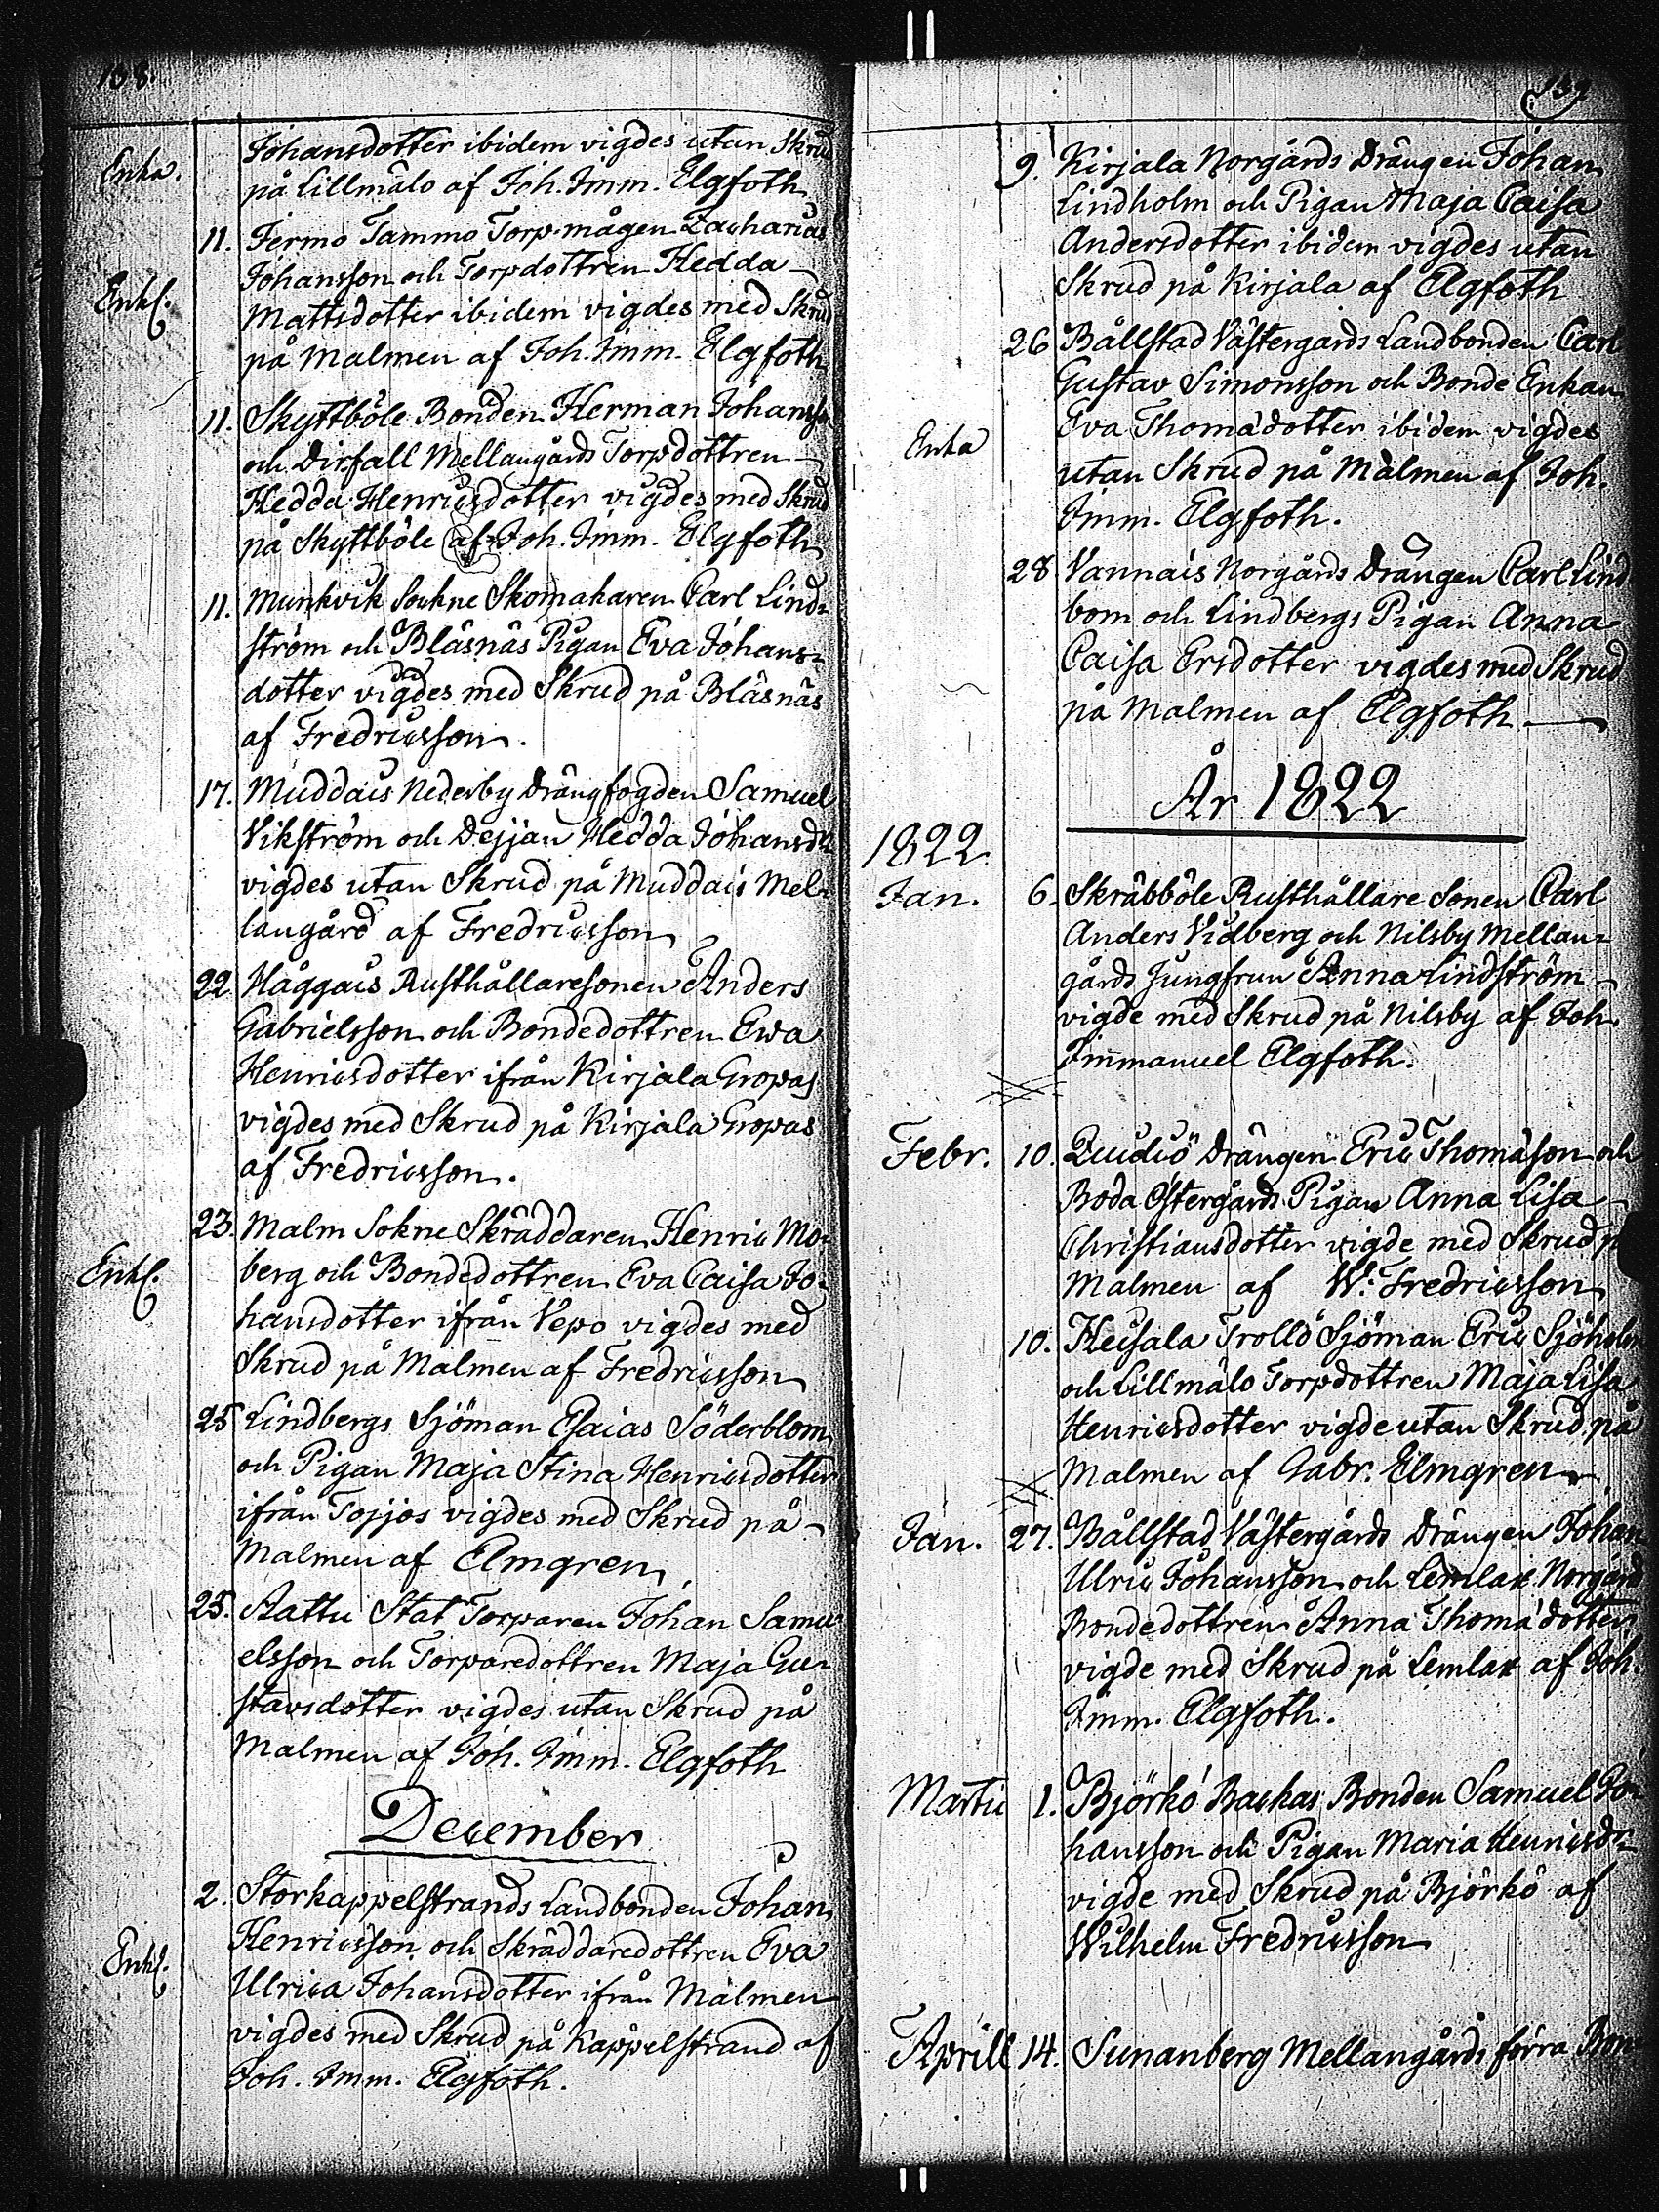 158.
Johansdotter ibidem vigdes utan Skrud
Enka.
på Lillmälo af Joh. Imm. Elgfoth
11. Fermo Tammo Torp-mågen Zacharias
Johansson och Torpdottren Hedda
Enkl.
Mattsdotter ibidem vigdes med Skrud
på Malmen af Joh. Imm. Elgfoth
11. Skyttböle Bonden Herman Johansso
och Dirfall Mellangårds Torpdottren
Hedda Henricsdotter vigdes med Skrud
på Skyttböle af Joh. Imm. Elgfoth
11. Munkvik Sockne Skomakaren Carl Lind-
ström och Bläsnäs Pigan Eva Johans-
dotter vigdes med Skrud på Bläsnäs
af Fredricsson.
17. Muddais Nederby Drängfogden Samuel
Vikström och Dejjan Hedda Johansdr
vigdes utan Skrud på Muddais Mel-
langård af Fredricsson
22 Häggais Rusthållaresonen Anders
Gabrielsson och Bondedottren Ewa
Henricsdotter ifrån Kirjala Gropas
vigdes med Skrud på Kirjala Gropas
af Fredricsson.
23. Malm Sokne Skräddaren Henric Mo-
Enkl.
berg och Bondedottren Eva Caisa Jo-
hansdotter ifrån Vepo vigdes med
Skrud på Malmen af Fredricsson
25 Lindbergs Sjöman Esaias Söderblom
och Pigan Maja Stina Henricsdotter
ifrån Tojjos vigdes med Skrud på
Malmen af Elmgren
25. Aattu Stat Torparen Johan Samu
elsson och Torparedottren Maja Gu-
stavsdotter vigdes utan Skrud på
Malmen af Joh. Imm. Elgfoth
December
2. Storkappelstrands Landbonden Johan
Henricsson och Skräddaredottren Eva
Enkl.
Ulrica Johansdotter ifrån Malmen
vigdes med Skrud på Kappelstrand af
Joh. Imm. Elgfoth.
159
9. Kirjala Norgårds Drängen Johan
Lindholm och Pigan Maja Caisa
Andersdotter ibidem vigdes utan
Skrud på Kirjala af Elgfoth
26 Bållstad Västergårds Landbonden Carl
Gustav Simonsson och Bonde Enkan
Enka
Eva Thomädotter ibidem vigdes
utan Skrud på Malmen af Joh.
Imm. Elgfoth.
28 Vannais Norgårds Drängen Carl Lind
bom och Lindbergs Pigan Anna
Caisa Ersdotter vigdes med Skrud
på Malmen af Elgfoth
År 1822
1822.
Jan. 6. Skräbböle Rusthållare Sonen Carl
Anders Vidberg och Nilsby Mellan-
gårds Jungfrun Anna Lindström
vigde med Skrud på Nilsby af Joh.
Immanuel Elgfoth.
Febr. 10. Quidiö Drängen Eric Thomäson och
Boda Östergårds Pigan Anna Lisa
Christiansdotter vigde med Skrud p
Malmen af W: Fredricsson
10. Heisala Trollö Sjöman Eric Sjöholm
och Lillmälo Torpdottren Maja Lisa
Henricsdotter vigde utan Skrud på
Malmen af Gabr. Elmgren
Jan. 27. Bållstad Västergårds Drängen Johan
Ulric Johansson och Lemlax Norgård
Bondedottren Anna Thomä dotter
vigde med Skrud på Lemlax af Joh.
Imm. Elgfoth.
Martii 1. Björkö Backas Bonden Samuel Jo
hansson och Pigan Maria Henricsdr
vigde med Skrud på Björkö af
Wilhelm Fredricsson
Aprill 14. Sunanberg Mellangårds förra Bon-